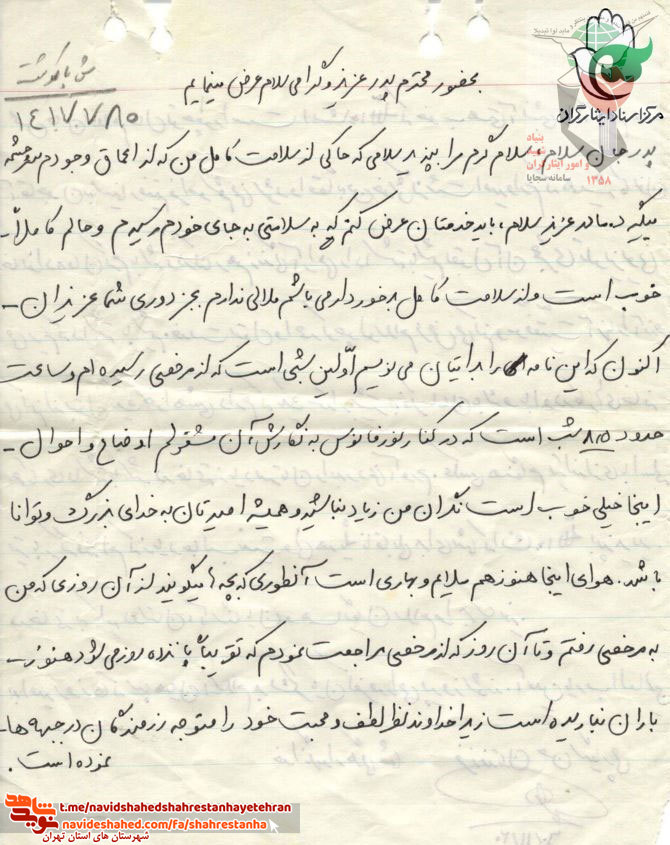 بحضور محترم پدر عزیز و گرامی سلام عرض مینمایم
ش بازگشت
۱۴۱۷۷۸۵
مرکز اسناد ایثارگران
بنیاد
و امور ایثارگران
سامانه سجایا
۱۳۵۸
پدر جان سلام، سلام گرم مرا بپذیر سلامی که حاکی از سلامت کامل من که از اعماق وجودم سرچشمه
میگیرد. مادر عزیز سلام، باید خدمتان عرض کنم که به سلامتی به جای خودم رسیدم و حالم کاملاً-
خوب است و از سلامت کامل برخوردار می باشم ملالی ندارم بجز دوری شما عزیزان-
اکنون که این نامه را برایتان می نویسم اوّلین شبی است که از مرخصی رسیده ام و ساعت
حدود ۸/۵ شب است که در کنار نور فانوس به نگارش آن مشغولم اوضاع و احوال-
اینجا خیلی خوب است نگران من زیاد نباشید و همیشه امیدتان به خدای بزرگ و توانا
باشد. هوای اینجا هنوز هم ملایم و بهاری است آنطوری که بچه ها میگویند از آن روزی که من
به مرخصی رفتم و تا آن روز که از مرخصی مراجعت نمودم که تقریباً پانزده روز می شود هنوز-
باران نباریده است زیرا خداوند نظر لطف و محبت خود را متوجه رزمندگان در جبهه ها-
نموده است.
شاهد
نوید
t.me/navidshahedshahrestanhayetehran
navideshahed.com/fa/shahrestanha
شهرستان های استان تهران